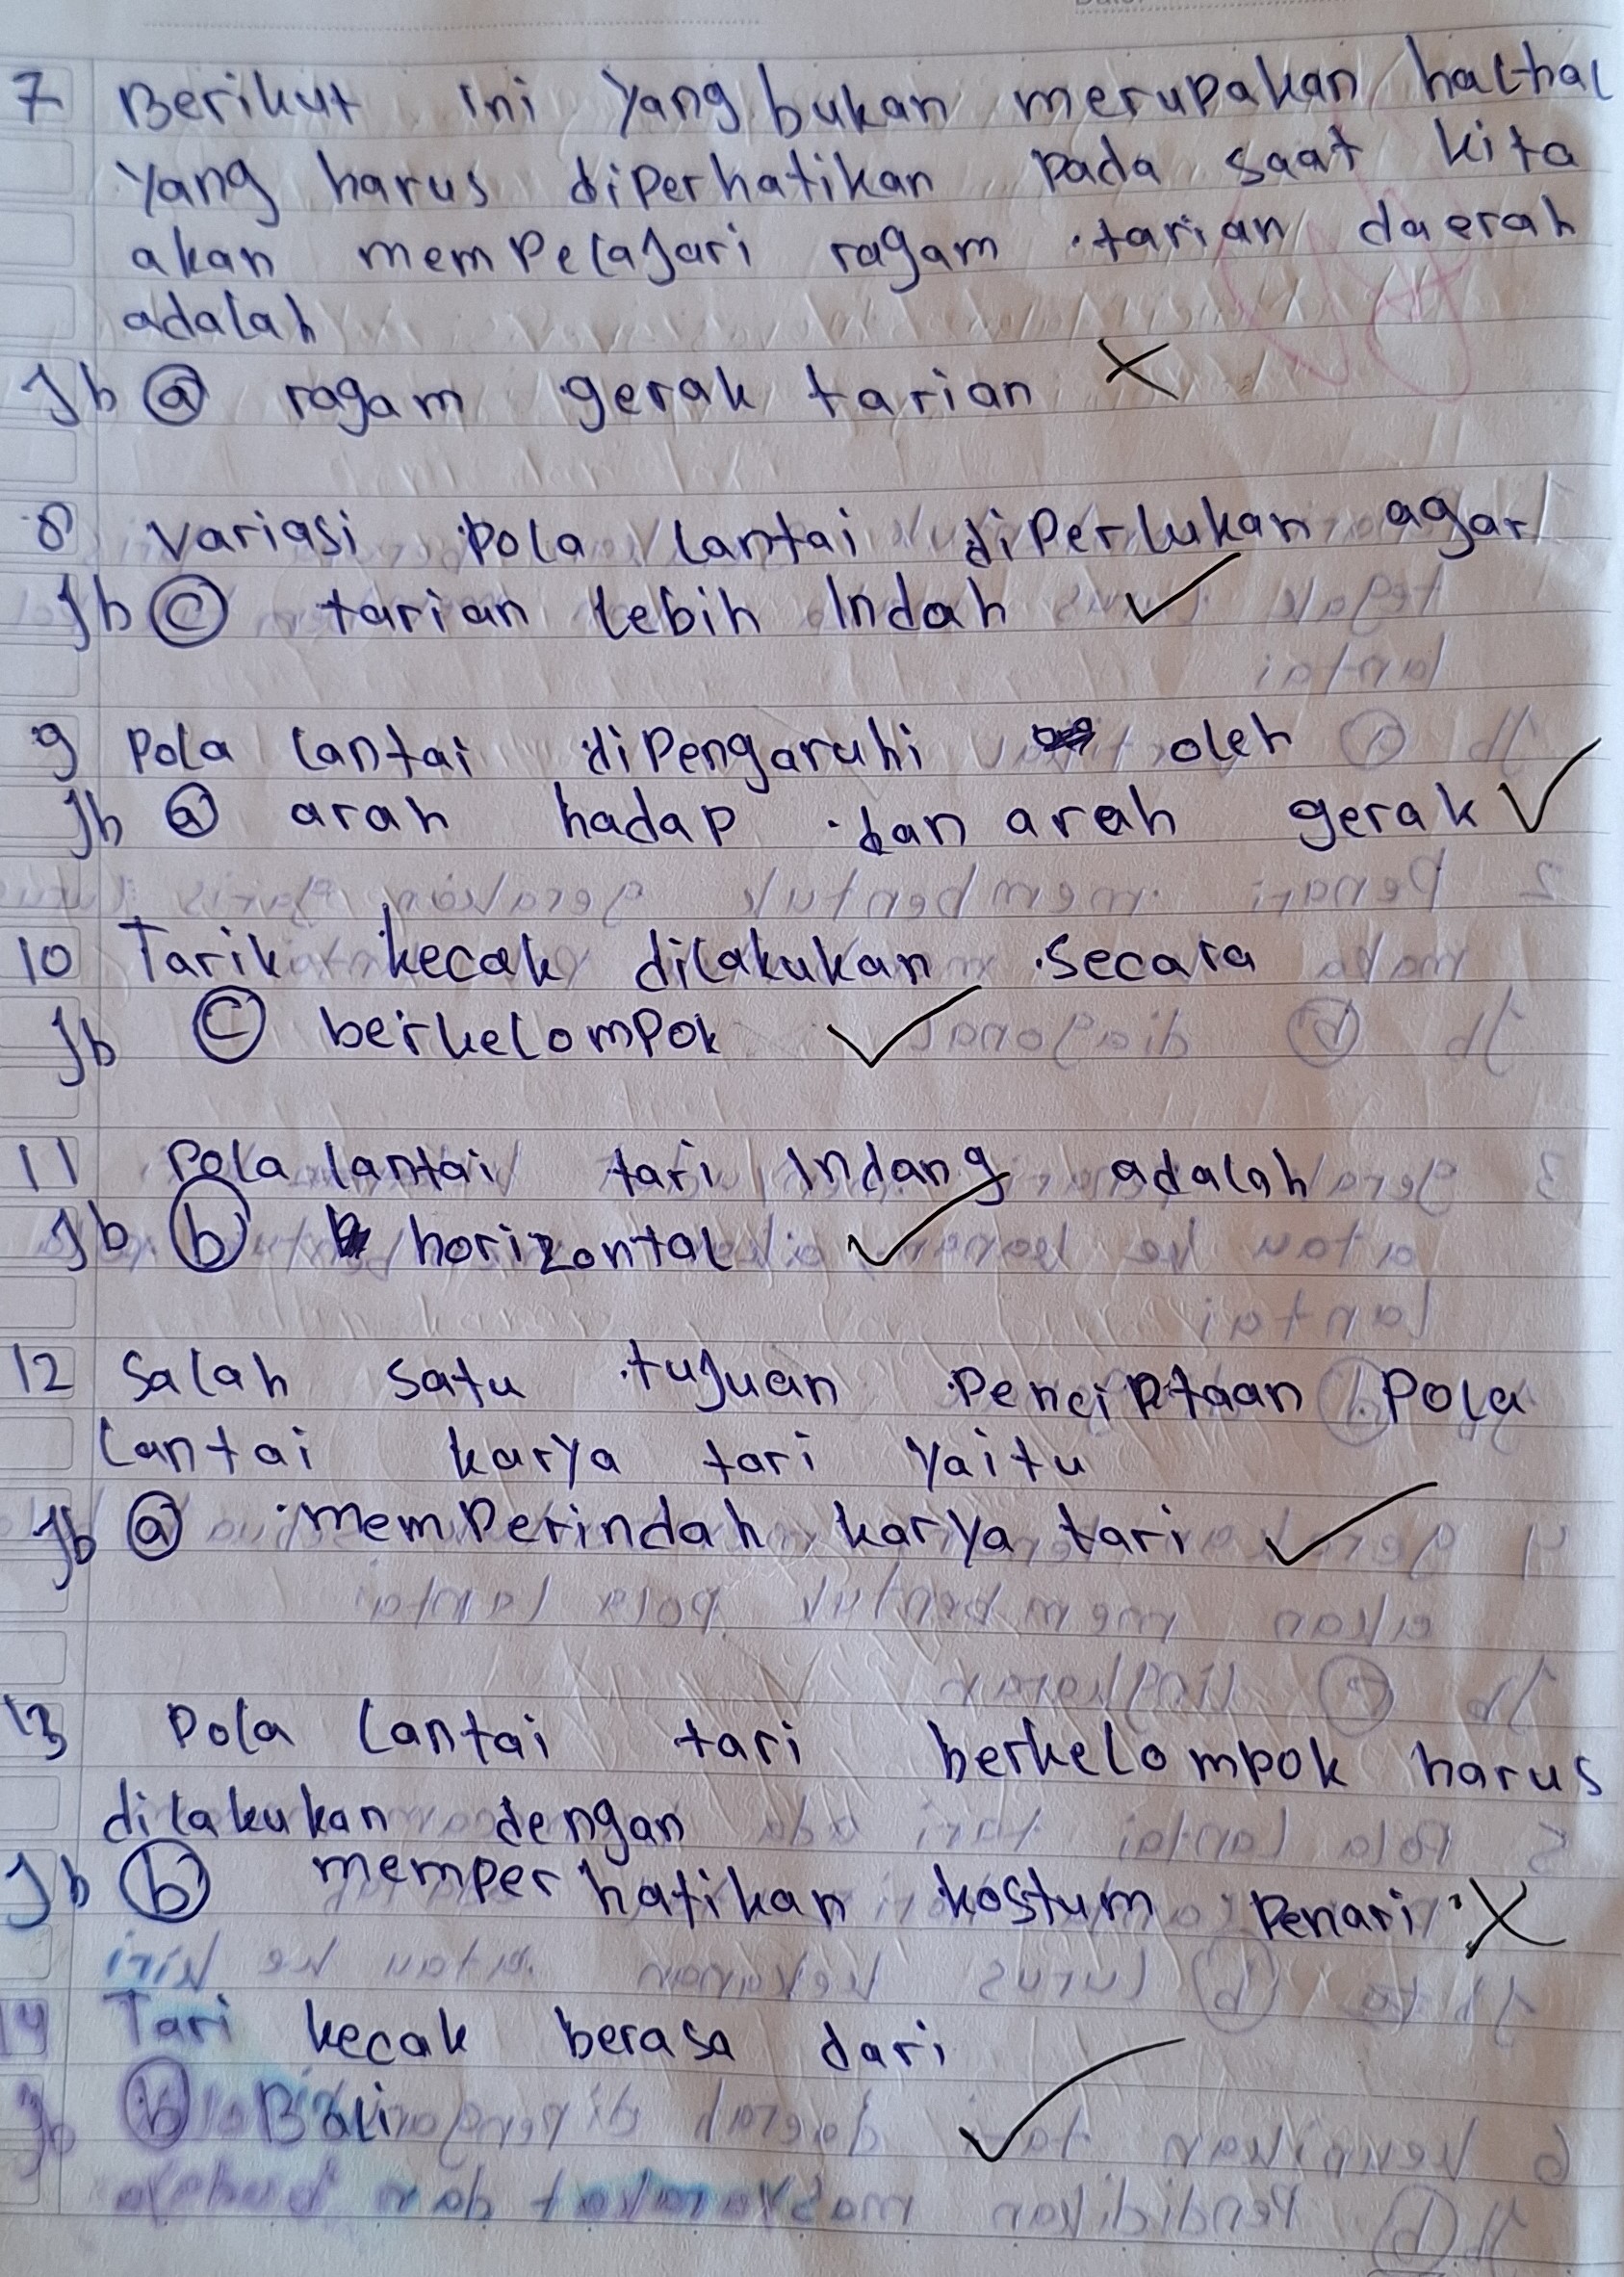 7 Berikut ini yang bukan merupakan hal-hal
yang harus diperhatikan pada saat kita
akan mempelajari ragam tarian daerah
adalah
Jb a ragam gerak tarian
8 Variasi pola lantai diperlukan agar
Jb c tarian lebih Indah
9 Pola lantai dipengaruhi oleh
Jb a arah hadap dan arah gerak
10 Tarik kecak dilakukan secara
Jb c berkelompok
11 Pola lantai tari Indang adalah
Jb b horizontal
12 Salah satu tujuan Penciptaan Pola
lantai karya tari yaitu
Jb a memperindah karya tari
13 Pola lantai tari berkelompok harus
dilakukan dengan
Jb b memperhatikan kostum Penari
14 Tari kecak berasa dari
Jb b Bali